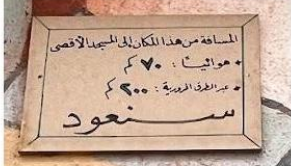 المسافة من هذا المكان إلى المسجد الأقصى
• هوائيًا : ٧٠ كم
• عبر الطرق البرية : ٢٠٠ كم
سنعود